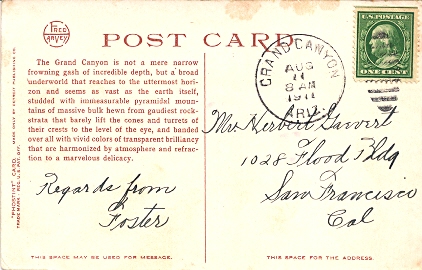 FRED
HARVEY
POST CARD
The Grand Canyon is not a mere narrow
frowning gash of incredible depth, but a broad
underworld that reaches to the uttermost hori-
zon and seems as vast as the earth itself,
studded with immeasurable pyramidal moun-
tains of massive bulk hewn from gaudiest rock-
strata that barely lift the cones and turrets of
their crests to the level of the eye, and banded
over all with vivid colors of transparent brilliancy
that are harmonized by atmosphere and refrac-
tion to a marvelous delicacy.
"PHOSTINT" CARD.
Regards from
Foster
THIS SPACE MAY BE USED FOR MESSAGE.
GRAND CANYON
AUG
11
8 AM
1911
ARIZ.
U.S. POSTAGE
ONE CENT
Mr Herbert
1028 Flood Bldg
San Francisco
Cal
THIS SPACE FOR THE ADDRESS.